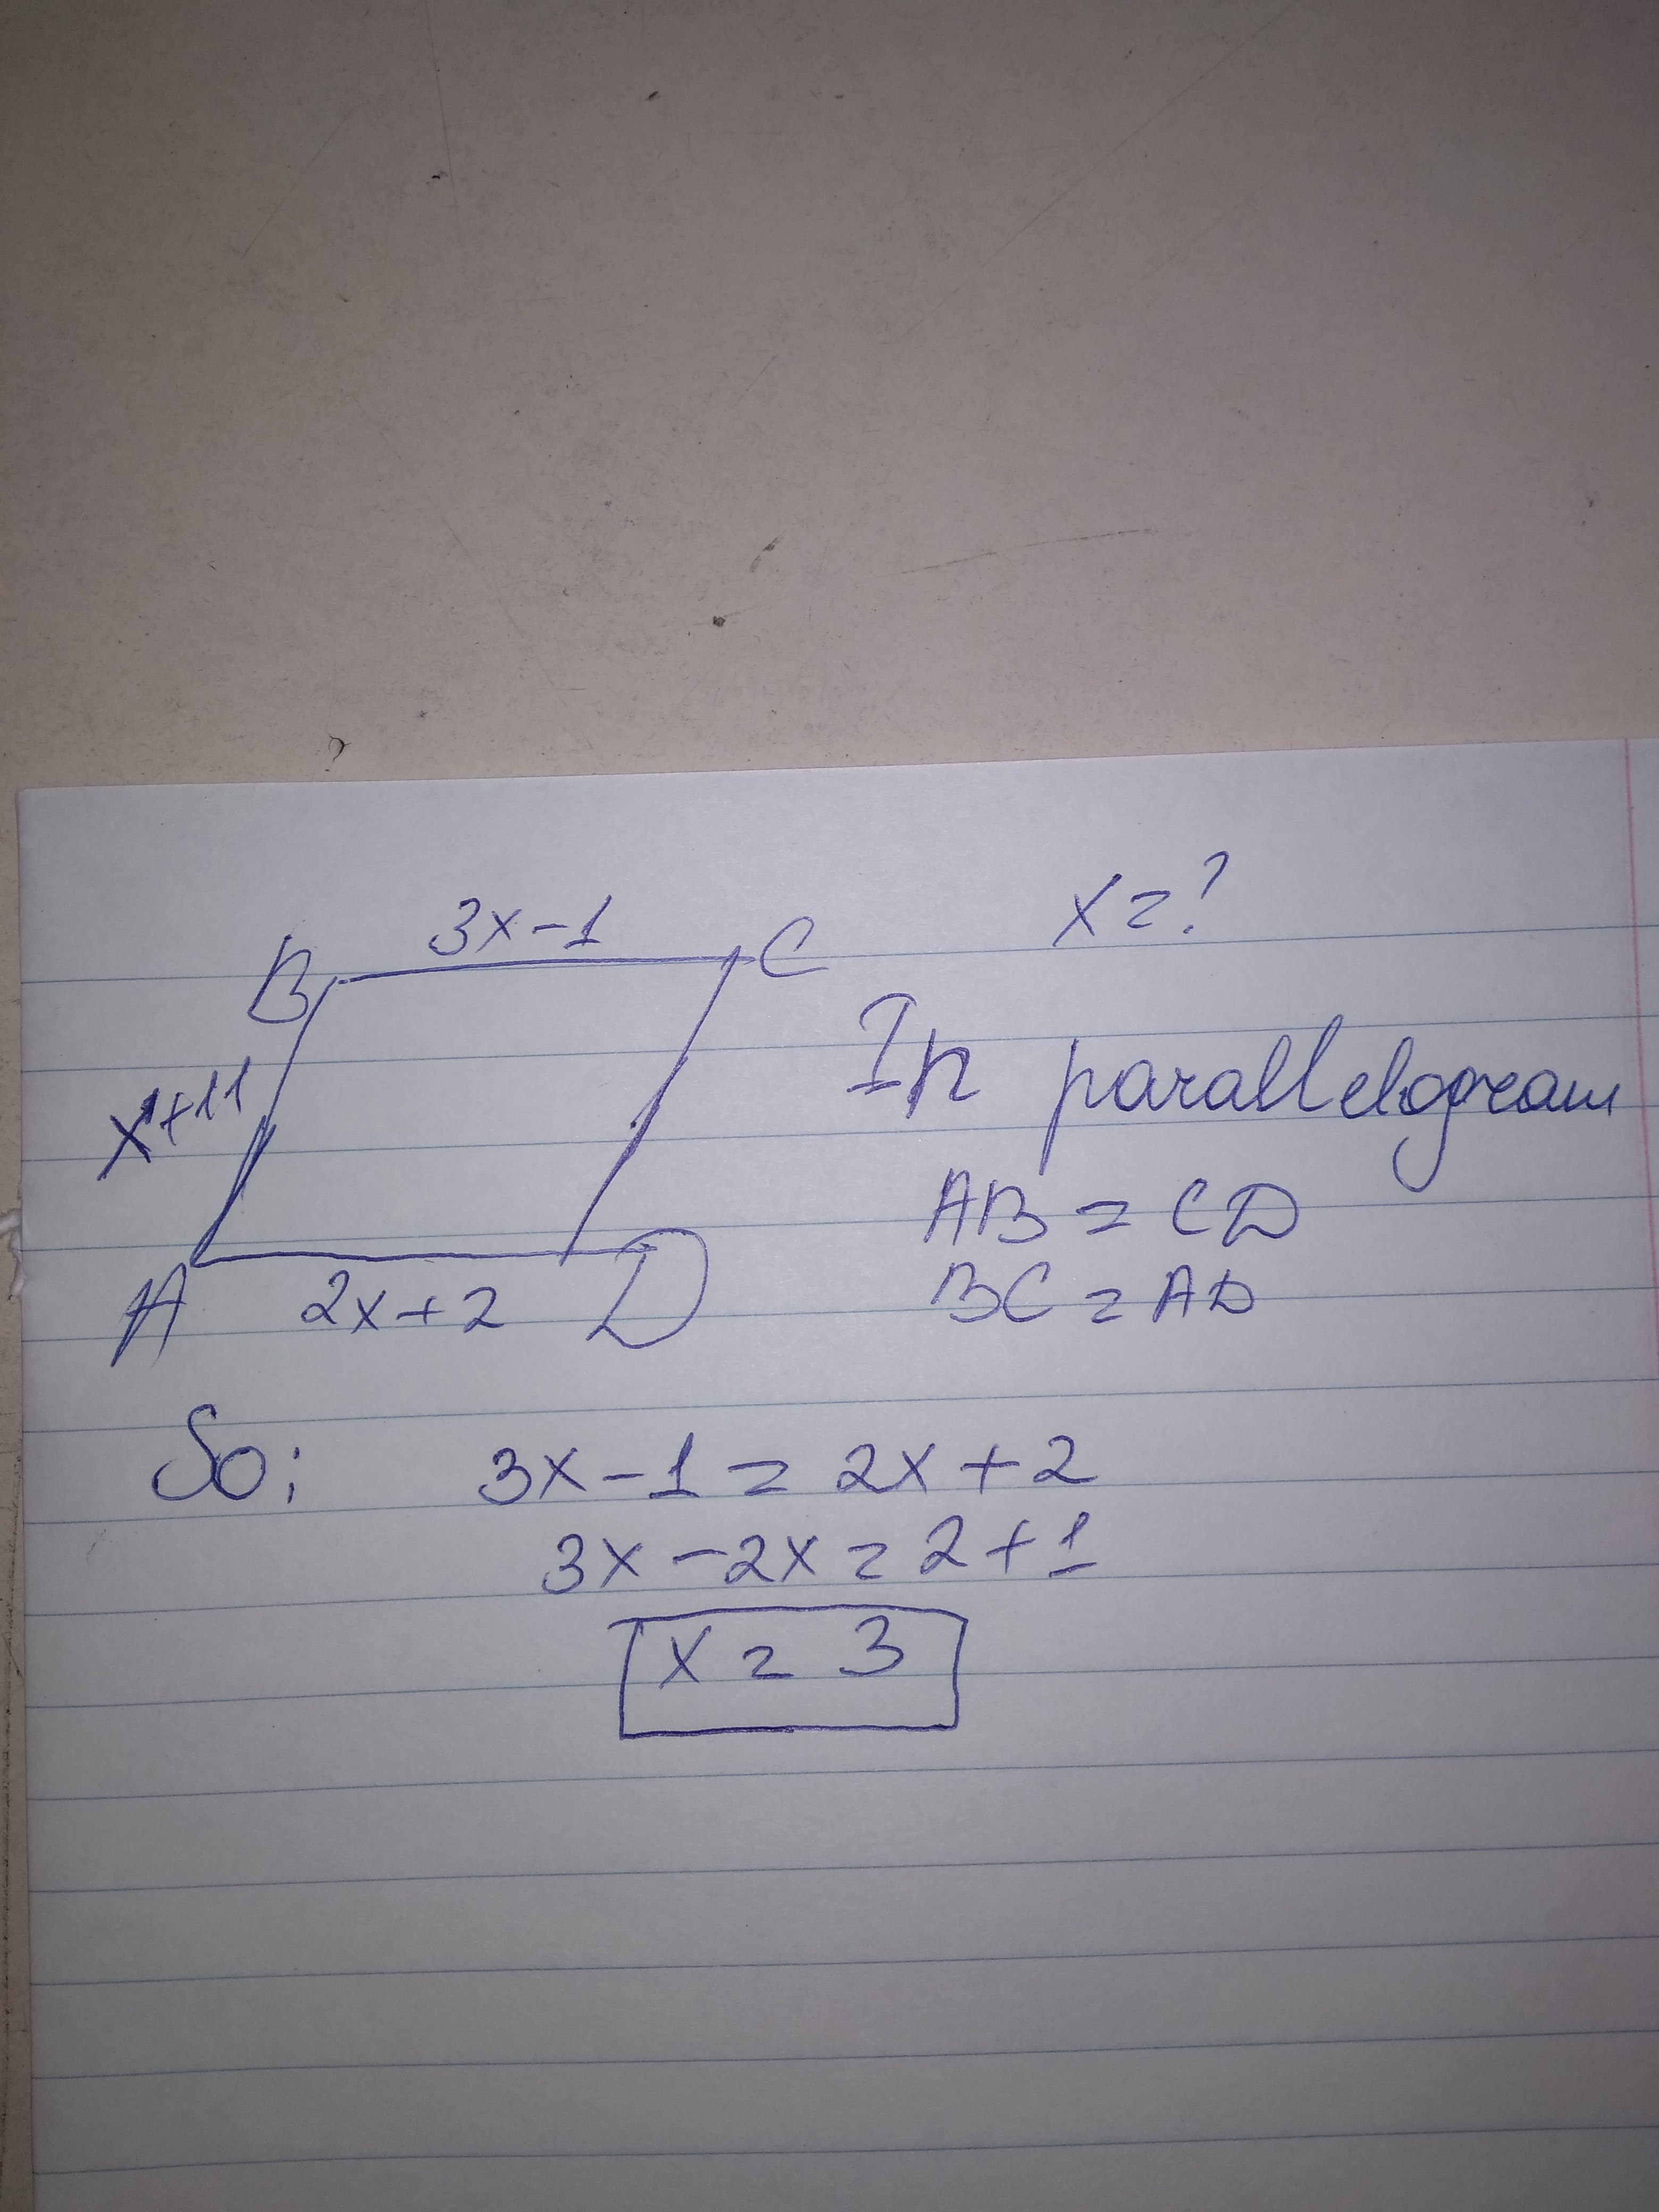 3x-1
x=?
B
C
x+11
In parallelogram
A
2x+2
D
AB = CD
BC = AD
So; 3x-1 = 2x+2
3x-2x = 2+1
x = 3